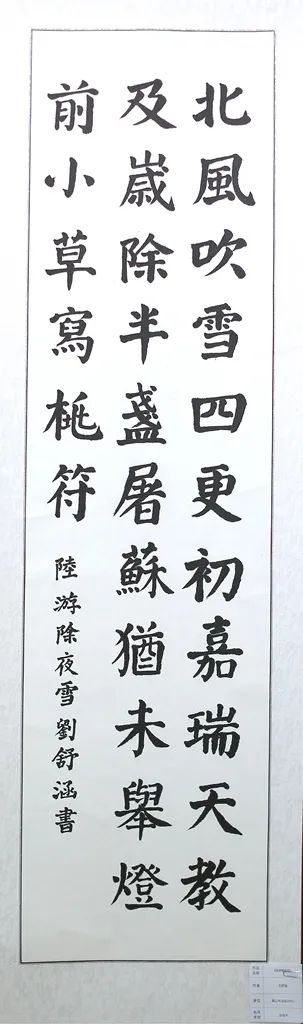 北風吹雪四更初嘉瑞天教
及歲除半盞屠蘇猶未舉燈
前小草寫桃符
陸游除夜雪劉舒涵書